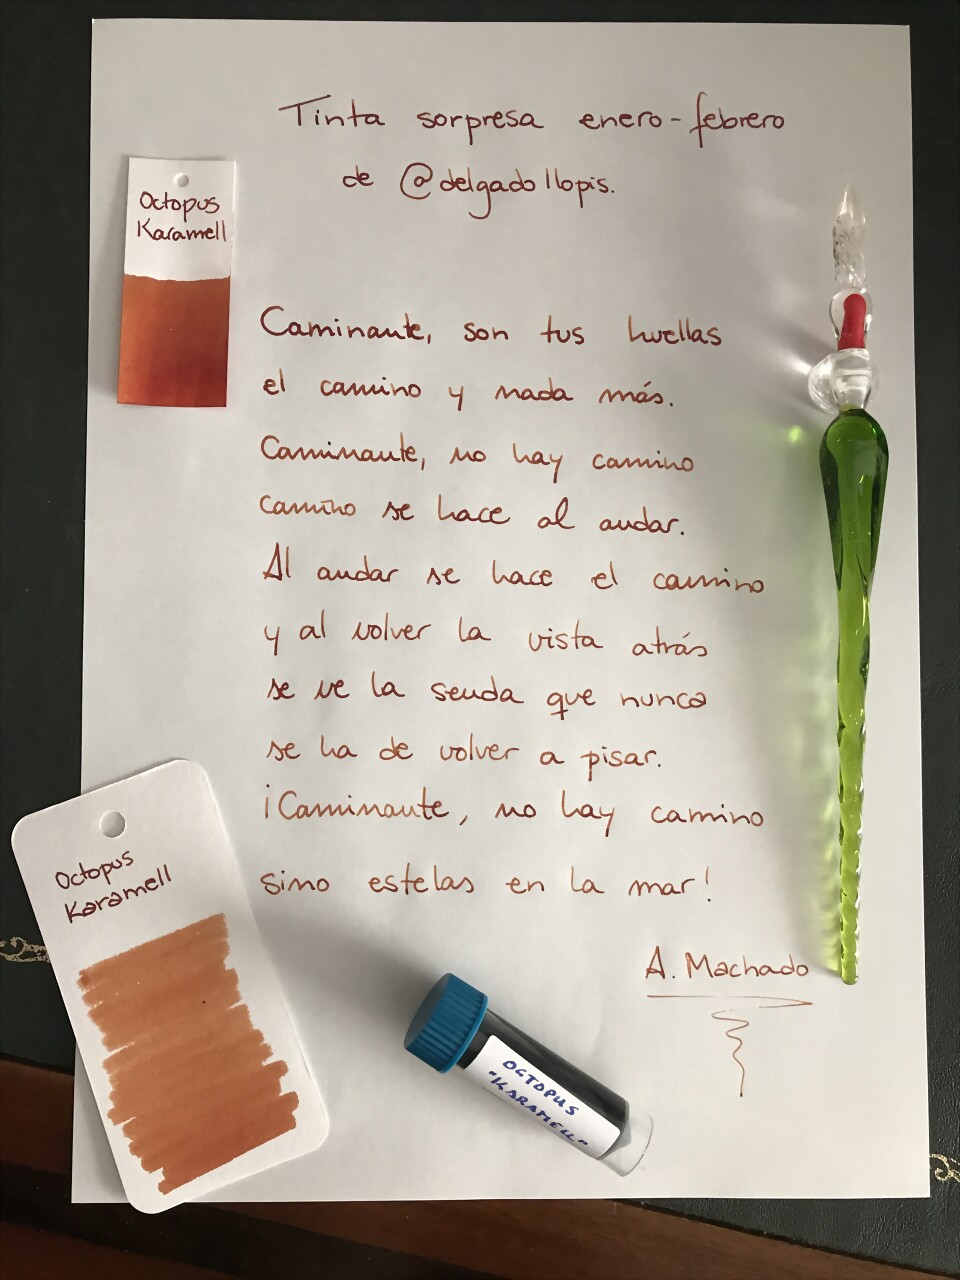 Tinta sorpresa enero-febrero
de @delgadollopis.
Octopus
Karamell
Caminante, son tus huellas
el camino y nada más.
Caminante, no hay camino
camino se hace al andar.
Al andar se hace el camino
y al volver la vista atrás
se ve la senda que nunca
se ha de volver a pisar.
¡Caminante, no hay camino
sino estelas en la mar!
A. Machado
Octopus
Karamell
OCTOPUS
"KARAMELL"